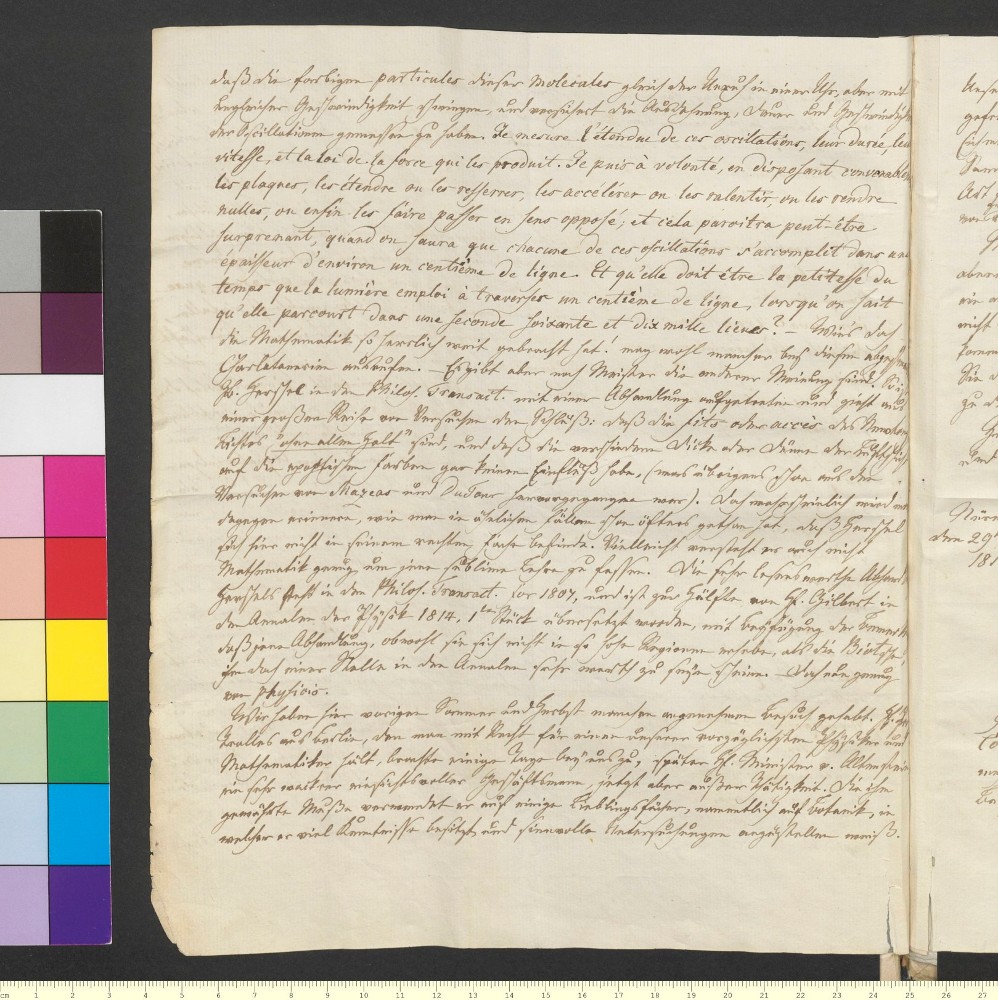 daß die farbigen particules dieser molecules gleich der Unruh in einer Uhr, aber mit
ungleicher Geschwindigkeit schwingen, und versichert die Ausdehnung, Dauer und Geschwindigk
der Oscillationen gemessen zu haben. Je mesure l'étendue de ces oscillations, leur durée, leu
vitesse, et la loi de la force qui les produit. Je puis à volonté, en disposant convenable
les plaques, les étendre ou les resserrer, les accélérer ou les ralentir, ou les rendre
nulles, ou enfin les faire passer en sens opposé; et cela paroitra peut-être
surprenant, quand on saura que chacune de ces oscillations s'accomplit dans une
epaisseur d'environ un centième de ligne. Et qu'elle doit être la petitesse du
temps que la lumière emploi à traverser un centième de ligne, lorsqu'on sait
qu'elle parcourt dans une seconde soixante et dix mille lieues? – Wie's doch
die Mathematik so herrlich weit gebracht hat! mag wohl mancher bey diesen
Charlatanerien ausrufen. – Es gibt aber noch Meister die anderer Meinung sind.
H. Herschel in den Philos. Transact. mit einer Abhandlung aufgetreten und zieht aus
einer großen Reihe von Versuchen den Schluß: daß die fits oder accès des Newton
Lichtes "ohne allen Halt" sind, und daß die verschiedene Dicke oder Dünne der
auf die epoptischen Farben gar keinen Einfluß habe, (was übrigens schon aus den
Versuchen von Mazeas und DuTour hervorgegangen war). Doch wahrscheinlich wird m
dagegen erinnern, wie man in ähnlichen Fällen schon öfters gethan hat, daß Herschel
sich hier nicht in seinem rechten Fache befinde. Vielleicht versteht er auch nicht
Mathematik genug um jene sublime Lehre zu fassen. Die sehr lesenswerthe Abhand
Herschels steht in den Philos. Transact. for 1807, und ist zur Hälfte von H. Gilbert in
den Annalen der Physik 1814, 1tes Stück übersetzt worden, mit Beyfügung der Bemerk
daß jene Abhandlung, obwohl sie sich nicht in so hohe Regionen erhebe, als die Biotsche
ihm doch einer Stelle in den Annalen sehr werth zu seyn scheine. – Doch nun genug
von physicis.
Wir haben hier vorigen Sommer und Herbst manchen angenehmen Besuch gehabt.
Tralles aus Berlin, den man mit Recht für einen unserer vorzüglichsten Physiker und
Mathematiker hält, brachte einige Tage bey uns zu, später H. Minister v. Altenstein
ein sehr weiterer einsichtsvoller Geschäftsmann, jetzt aber außer Thätigkeit. Die ihm
gewährte Muße verwendet er auf einige Lieblingsfächer, namentlich auf Botanik, in
welcher er viel Kenntnisse besitzt, und sinnvolle Untersuchungen anzustellen weiß.
den 29